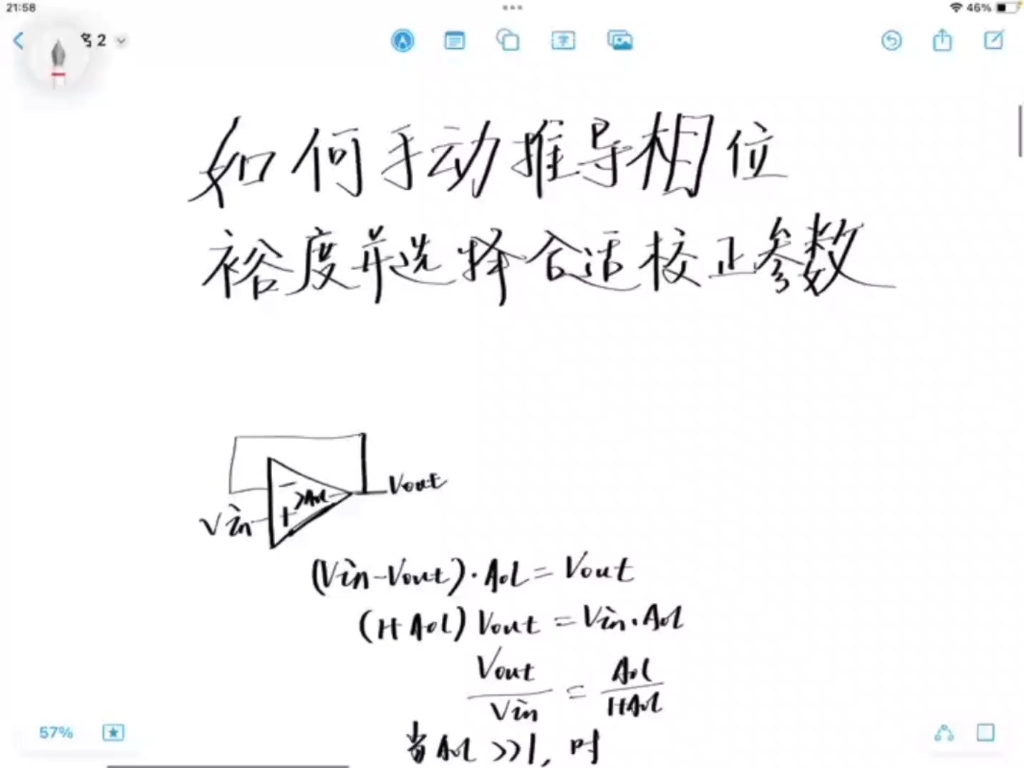 21:58
46%
名 2
如何手动推导相位
裕度并选择合适校正参数
Vout
- Aol
+
Vin
(Vin-Vout)·Aol=Vout
(1+Aol)Vout=Vin·Aol
Vout/Vin = Aol/1+Aol
当Aol>>1,时
57%